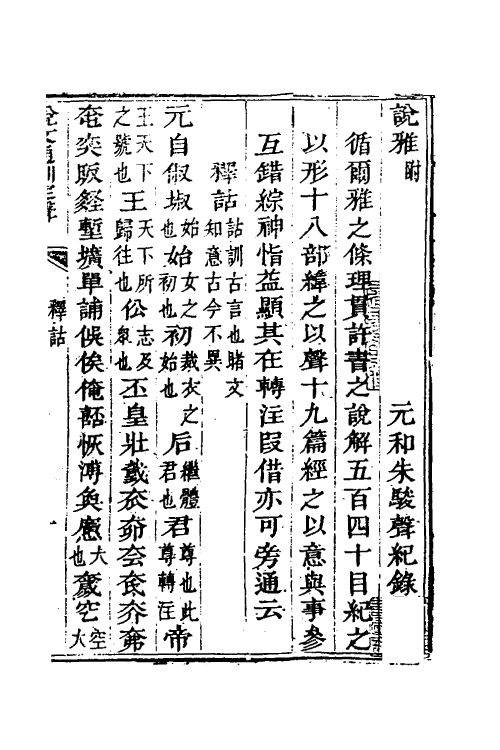 說雅附
元和朱駿聲紀錄
循爾雅之條理貫許書之說解五百四十目紀之
以形十八部緯之以聲十九篇經之以意與事參
互錯綜神恉益顯其在轉注叚借亦可旁通云
釋詁詁訓古言也賭文知意古今不異
元自俶㑐始也始女之初也初裁衣之始也后繼體君也君尊也此尊轉注帝
王天下之號也王天下所歸往也公志及眾也丕皇壯
單誧俁俟俺
恢溥大也空空大
說文通訓定聲
釋詁
一